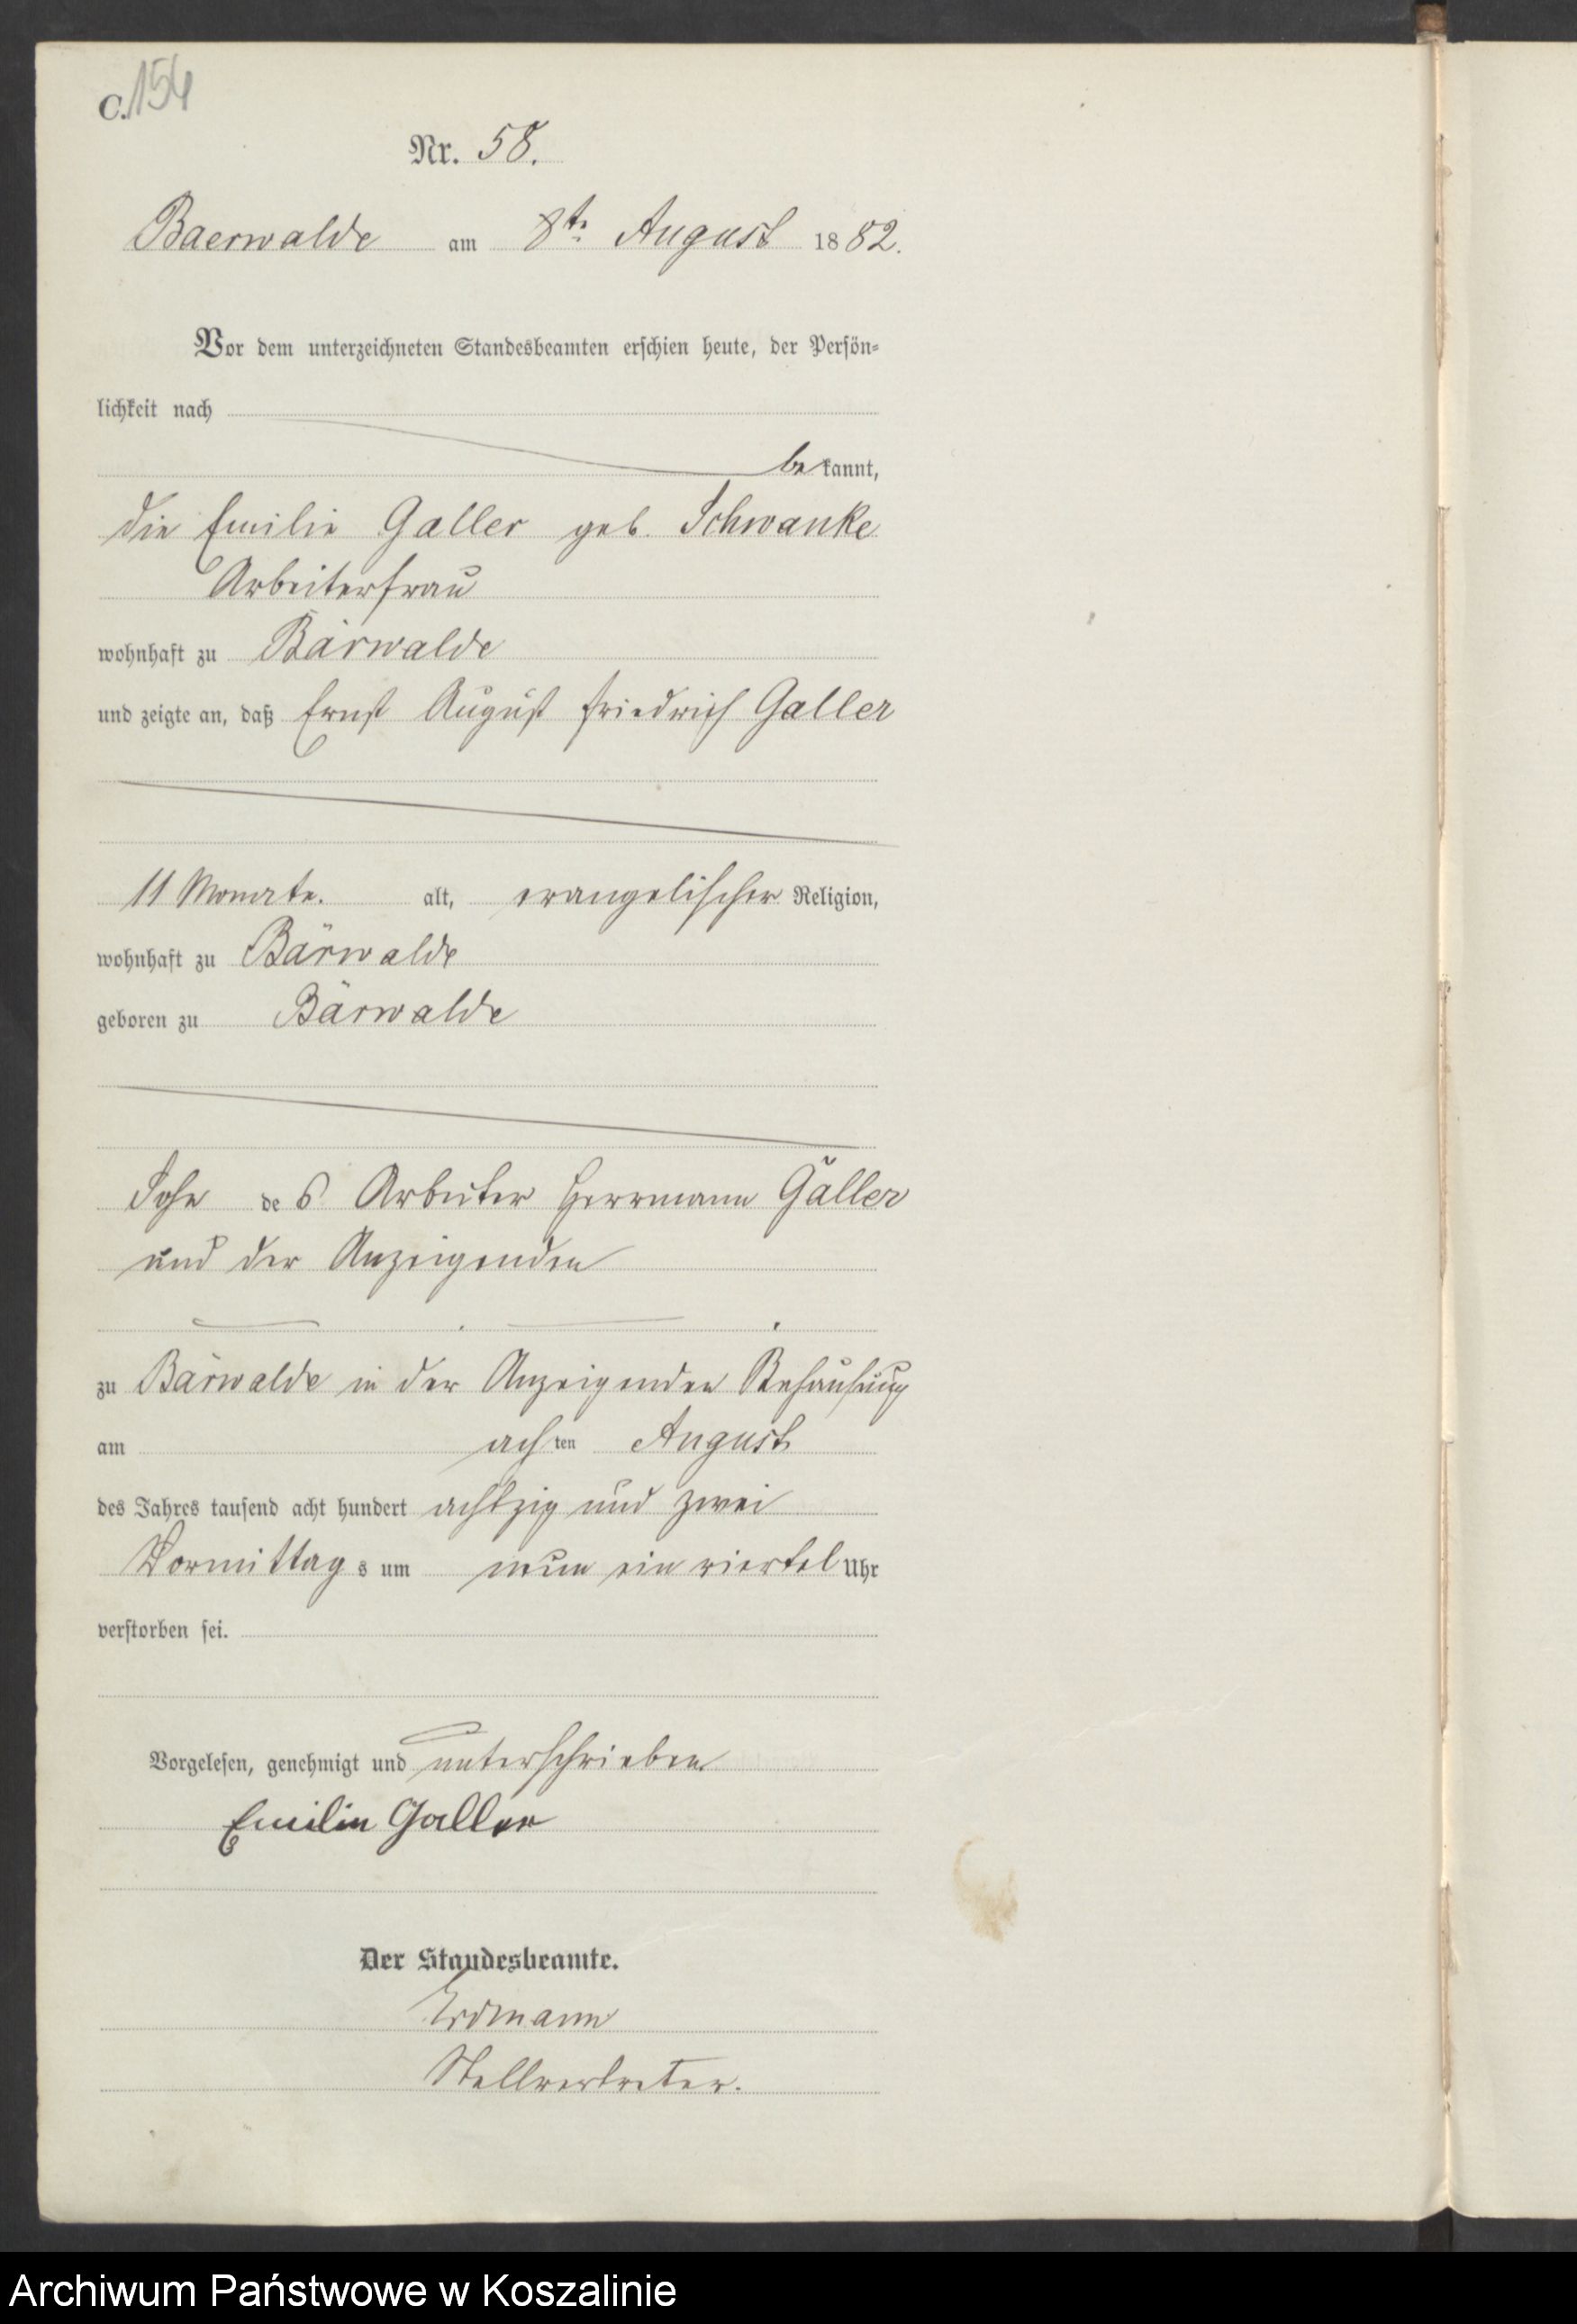 C. 154
Nr. 58.
Baerwalde am 8te August 1882.
Vor dem unterzeichneten Standesbeamten erschien heute, der Persön-
lichkeit nach
bekannt,
die Emilie Galler geb. Schwanke
Arbeiterfrau
wohnhaft zu Bärwalde
und zeigte an, daß Ernst August Friedrich Galler
11 Monate. alt, evangelischer Religion,
wohnhaft zu Bärwalde
geboren zu Bärwalde
Sohn des Arbeiter Herrmann Galler
und der Anzeigenden
zu Bärwalde in der Anzeigenden Behausung
am achten August
des Jahres tausend acht hundert achtzig und zwei
Vormittags um neun ein viertel Uhr
verstorben sei.
Vorgelesen, genehmigt und unterschrieben
Emilie Galler
Der Standesbeamte.
Erdmann
Stellvertreter.
Archiwum Państwowe w Koszalinie